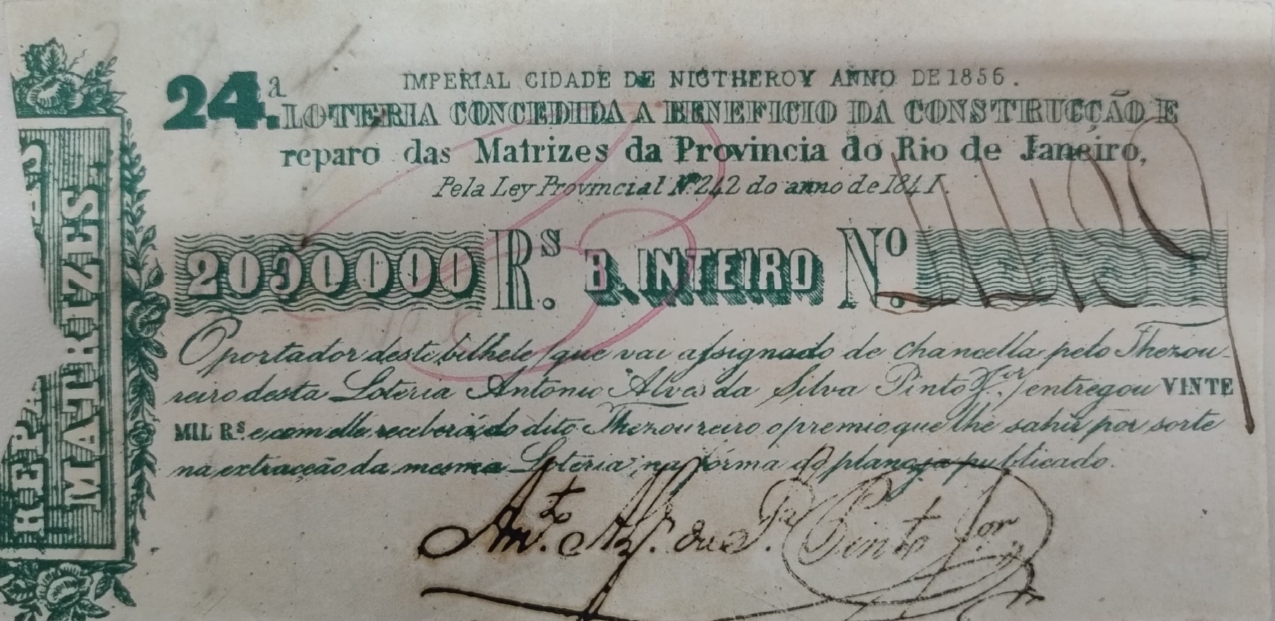 24.ª
IMPERIAL CIDADE DE NICTHEROY ANNO DE 1856.
LOTERIA CONCEDIDA A BENEFICIO DA CONSTRUCÇÃO E
reparo das Matrizes da Provincia do Rio de Janeiro,
Pela Ley Provincial Nº 242 do anno de 1841
20$0000000 Rs. B. INTEIRO Nº.
O portador deste bilhete (que vai assignado de chancella pelo Thezou-
reiro desta Loteria Antonio Alves da Silva Pinto Jor) entregou VINTE
MIL Rs e com elle receberá do dito Thezoureiro o premio que lhe sahir por sorte
na extracção da mesma Loteria na fórma do plano ja publicado.
Anto. Alz. da Sa. Pinto Jor.
MATRIZES.
REP